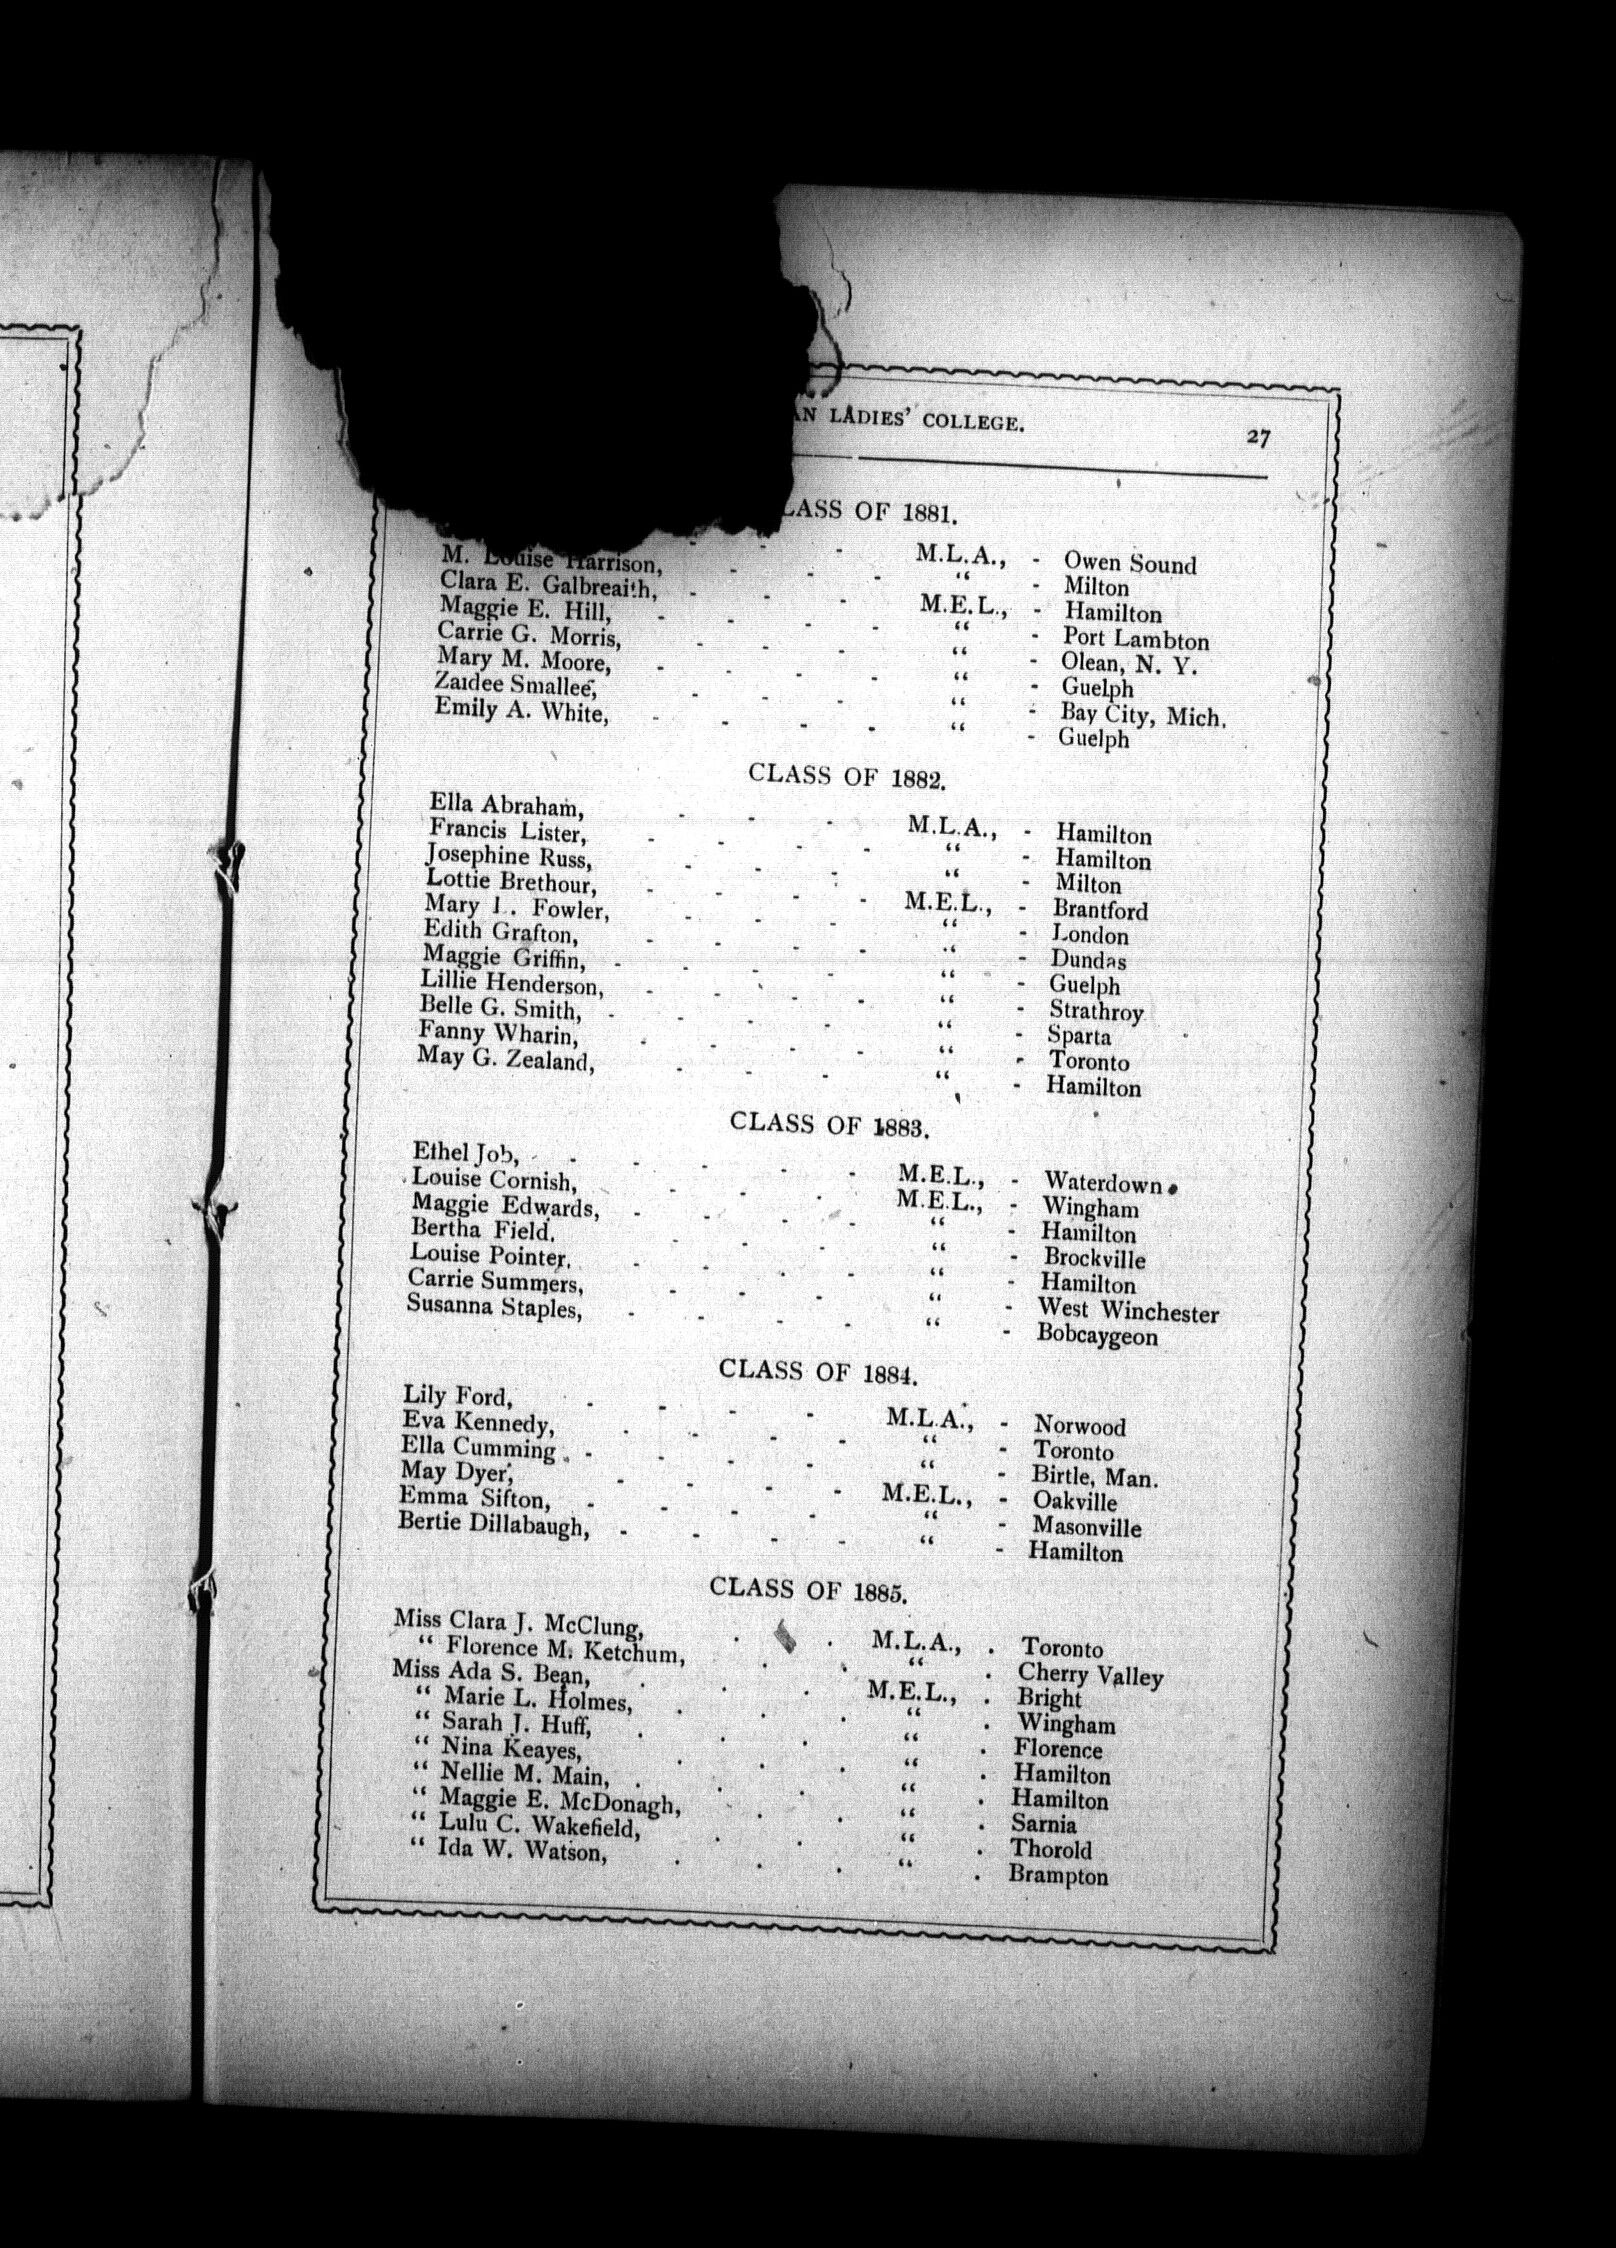 AN LADIES' COLLEGE. 27
CLASS OF 1881.
- - M.L.A., - Owen Sound
M. Louise Harrison, - - - “ - Milton
Clara E. Galbreaith, - - - M.E.L., - Hamilton
Maggie E. Hill, - - - - “ - Port Lambton
Carrie G. Morris, - - - “ - Olean, N. Y.
Mary M. Moore, - - - - “ - Guelph
Zaidee Smallee, - - - “ - Bay City, Mich.
Emily A. White, - - - - “ - Guelph
CLASS OF 1882.
Ella Abraham, - - - M.L.A., - Hamilton
Francis Lister, - - - - “ - Hamilton
Josephine Russ, - - - “ - Milton
Lottie Brethour, - - - - M.E.L., - Brantford
Mary L. Fowler, - - - “ - London
Edith Grafton, - - - - “ - Dundas
Maggie Griffin, - - - - “ - Guelph
Lillie Henderson, - - - - “ - Strathroy
Belle G. Smith, - - - - “ - Sparta
Fanny Wharin, - - - - “ - Toronto
May G. Zealand, - - - “ - Hamilton
CLASS OF 1883.
Ethel Job, - - - - - M.E.L., - Waterdown
Louise Cornish, - - - M.E.L., - Wingham
Maggie Edwards, - - - - “ - Hamilton
Bertha Field, - - - “ - Brockville
Louise Pointer, - - - - “ - Hamilton
Carrie Summers, - - - “ - West Winchester
Susanna Staples, - - - - “ - Bobcaygeon
CLASS OF 1884.
Lily Ford, - - - - M.L.A., - Norwood
Eva Kennedy, - - - - “ - Toronto
Ella Cumming - - - - “ - Birtle, Man.
May Dyer, - - - - M.E.L., - Oakville
Emma Sifton, - - - - “ - Masonville
Bertie Dillabaugh, - - - - “ - Hamilton
CLASS OF 1885.
Miss Clara J. McClung, . . M.L.A., . Toronto
“ Florence M. Ketchum, . . “ . Cherry Valley
Miss Ada S. Bean, . . . M.E.L., . Bright
“ Marie L. Holmes, . . . “ . Wingham
“ Sarah J. Huff, . . . “ . Florence
“ Nina Keayes, . . . “ . Hamilton
“ Nellie M. Main, . . . . “ . Hamilton
“ Maggie E. McDonagh, . . “ . Sarnia
“ Lulu C. Wakefield, . . “ . Thorold
“ Ida W. Watson, . . . “ . Brampton